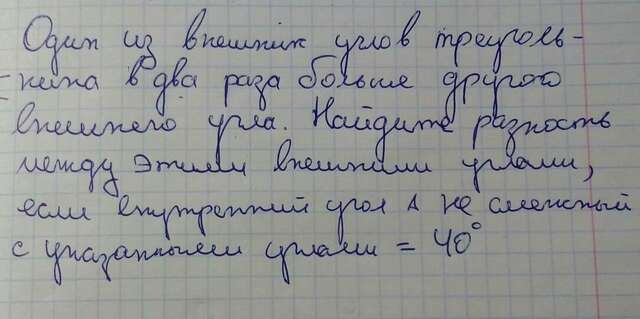 Один из внешних углов треуголь-
ника в два раза больше другого
внешнего угла. Найдите разность
между этими внешними углами,
если внутренний угол ∆ не смежный
с указанными углами = 40°